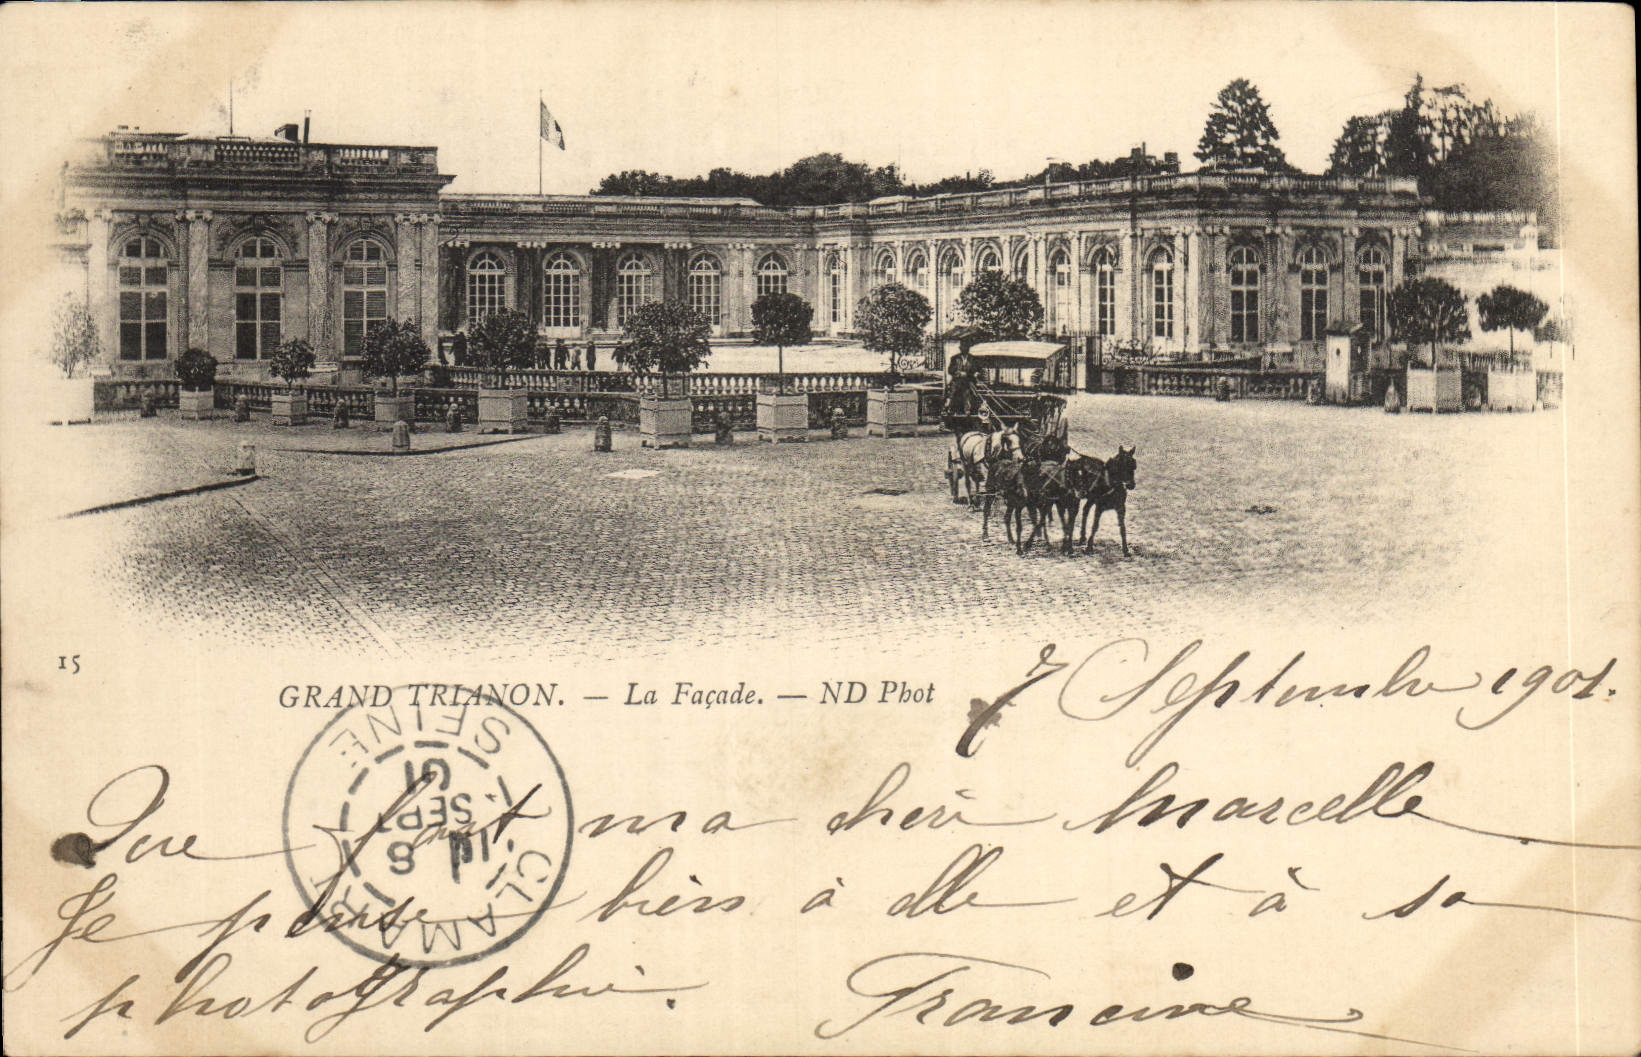 15
GRAND TRIANON. — La Façade. — ND Phot
7 Septembre 1901.
Que fait ma chéri Marcelle
Je pense bien à elle et à sa
photographie.
Francine
CLAMART
SEINE
8
SEPT
01